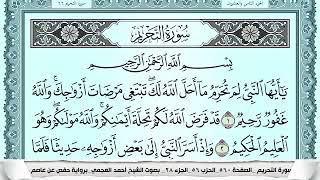 سُورَةُ التَّحْرِيمِ
بِسْمِ اللَّهِ الرَّحْمَٰنِ الرَّحِيمِ
يَٰٓأَيُّهَا ٱلنَّبِىُّ لِمَ تُحَرِّمُ مَآ أَحَلَّ ٱللَّهُ لَكَ ۖ تَبْتَغِى مَرْضَاتَ أَزْوَٰجِكَ ۚ وَٱللَّهُ
غَفُورٌ رَّحِيمٌ ١ قَدْ فَرَضَ ٱللَّهُ لَكُمْ تَحِلَّةَ أَيْمَٰنِكُمْ ۚ وَٱللَّهُ مَوْلَىٰكُمْ ۖ وَهُوَ
ٱلْعَلِيمُ ٱلْحَكِيمُ ٢ وَإِذْ أَسَرَّ ٱلنَّبِىُّ إِلَىٰ بَعْضِ أَزْوَٰجِهِۦ حَدِيثًا فَلَمَّا
سورة التحريم الصفحة ٥٦٠ الحزب ٥٦ الجزء ٢٨ بصوت الشيخ أحمد العجمي برواية حفص عن عاصم